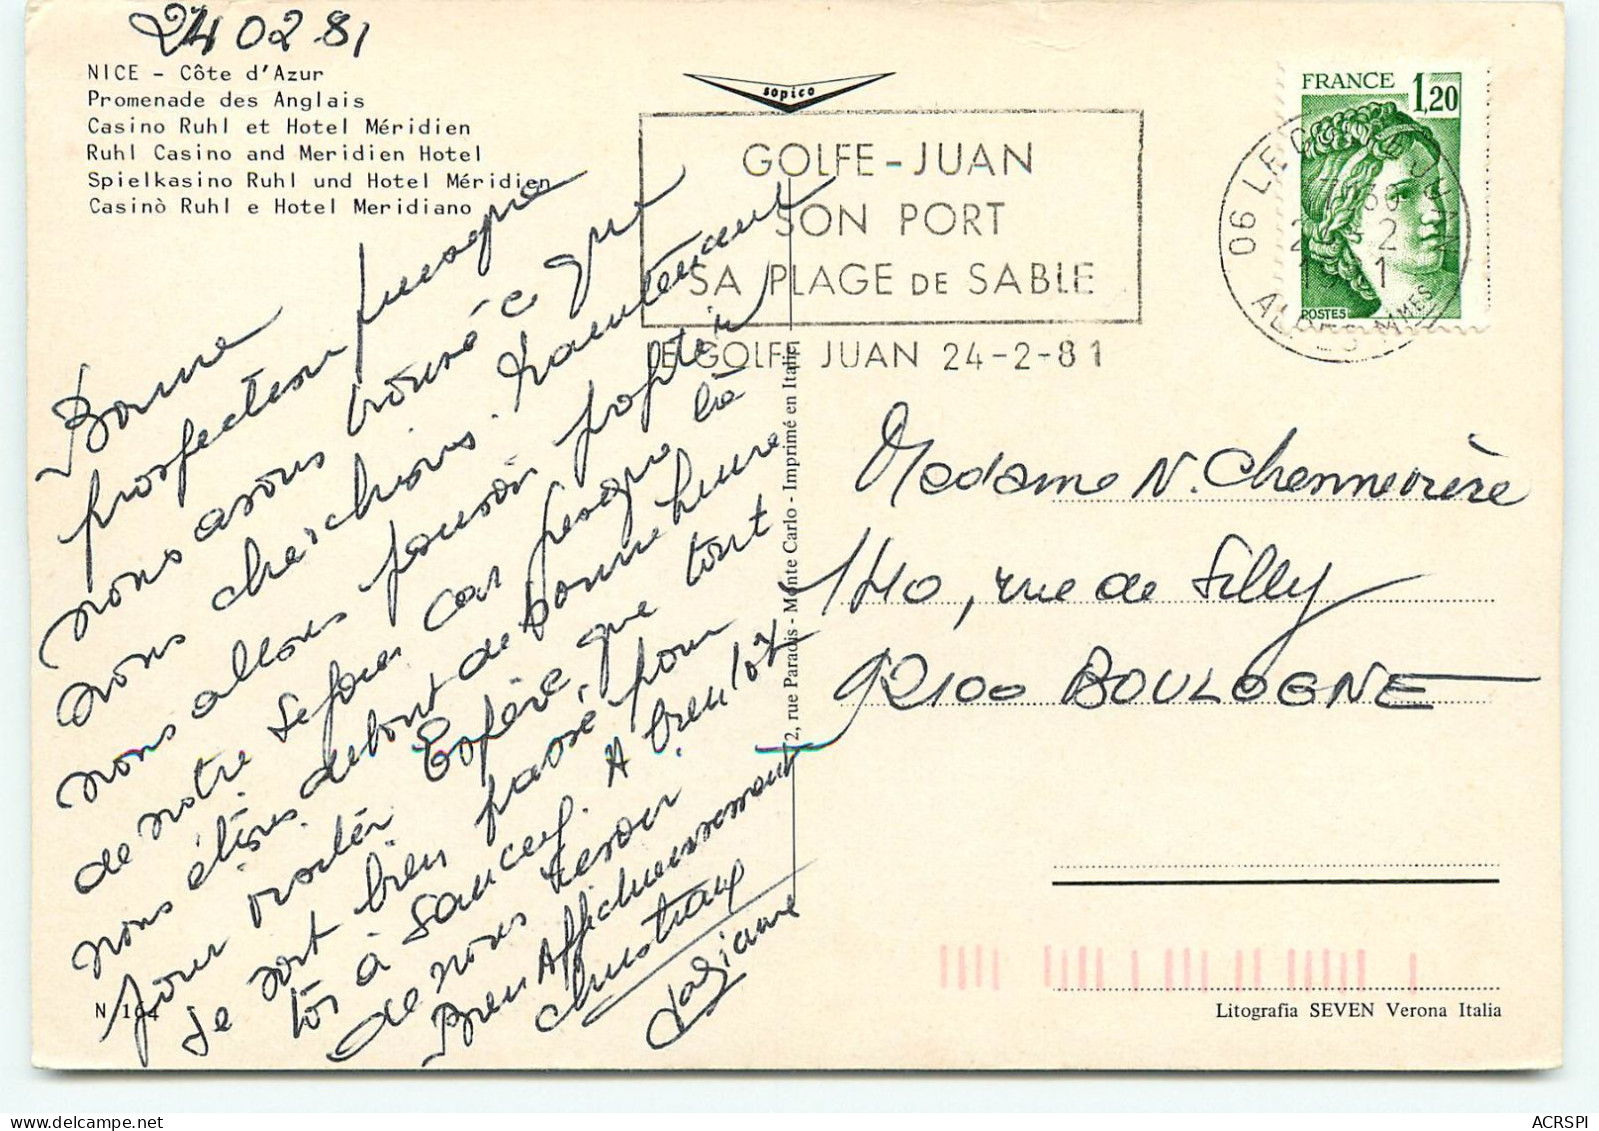 24 02 81
NICE - Côte d'Azur
Promenade des Anglais
Casino Ruhl et Hotel Méridien
Ruhl Casino and Meridien Hotel
Spielkasino Ruhl und Hotel Méridien
Casinò Ruhl e Hotel Meridiano
sopico
GOLFE-JUAN
SON PORT
SA PLAGE DE SABLE
LE GOLFE JUAN 24-2-81
FRANCE 1,20
POSTES
06 LE GOLFE JUAN
ALPES MMES
Bonne
prospection puisque
nous avons trouvé ce que
nous cherchions. Maintenant
nous allons pouvoir profiter
de notre séjour car presque là
nous étions debout de bonne heure
pour visiter. Espère que tout
se soit bien passé pour
toi à Sancey. A bientôt
de nous revoir
Bien Affectueusement
Madame N. Chennevière
140, rue de Silly
92100 BOULOGNE
2, rue Paradis - Monte Carlo - Imprimé en Italie
N 164
Litografia SEVEN Verona Italia
ACRSPI